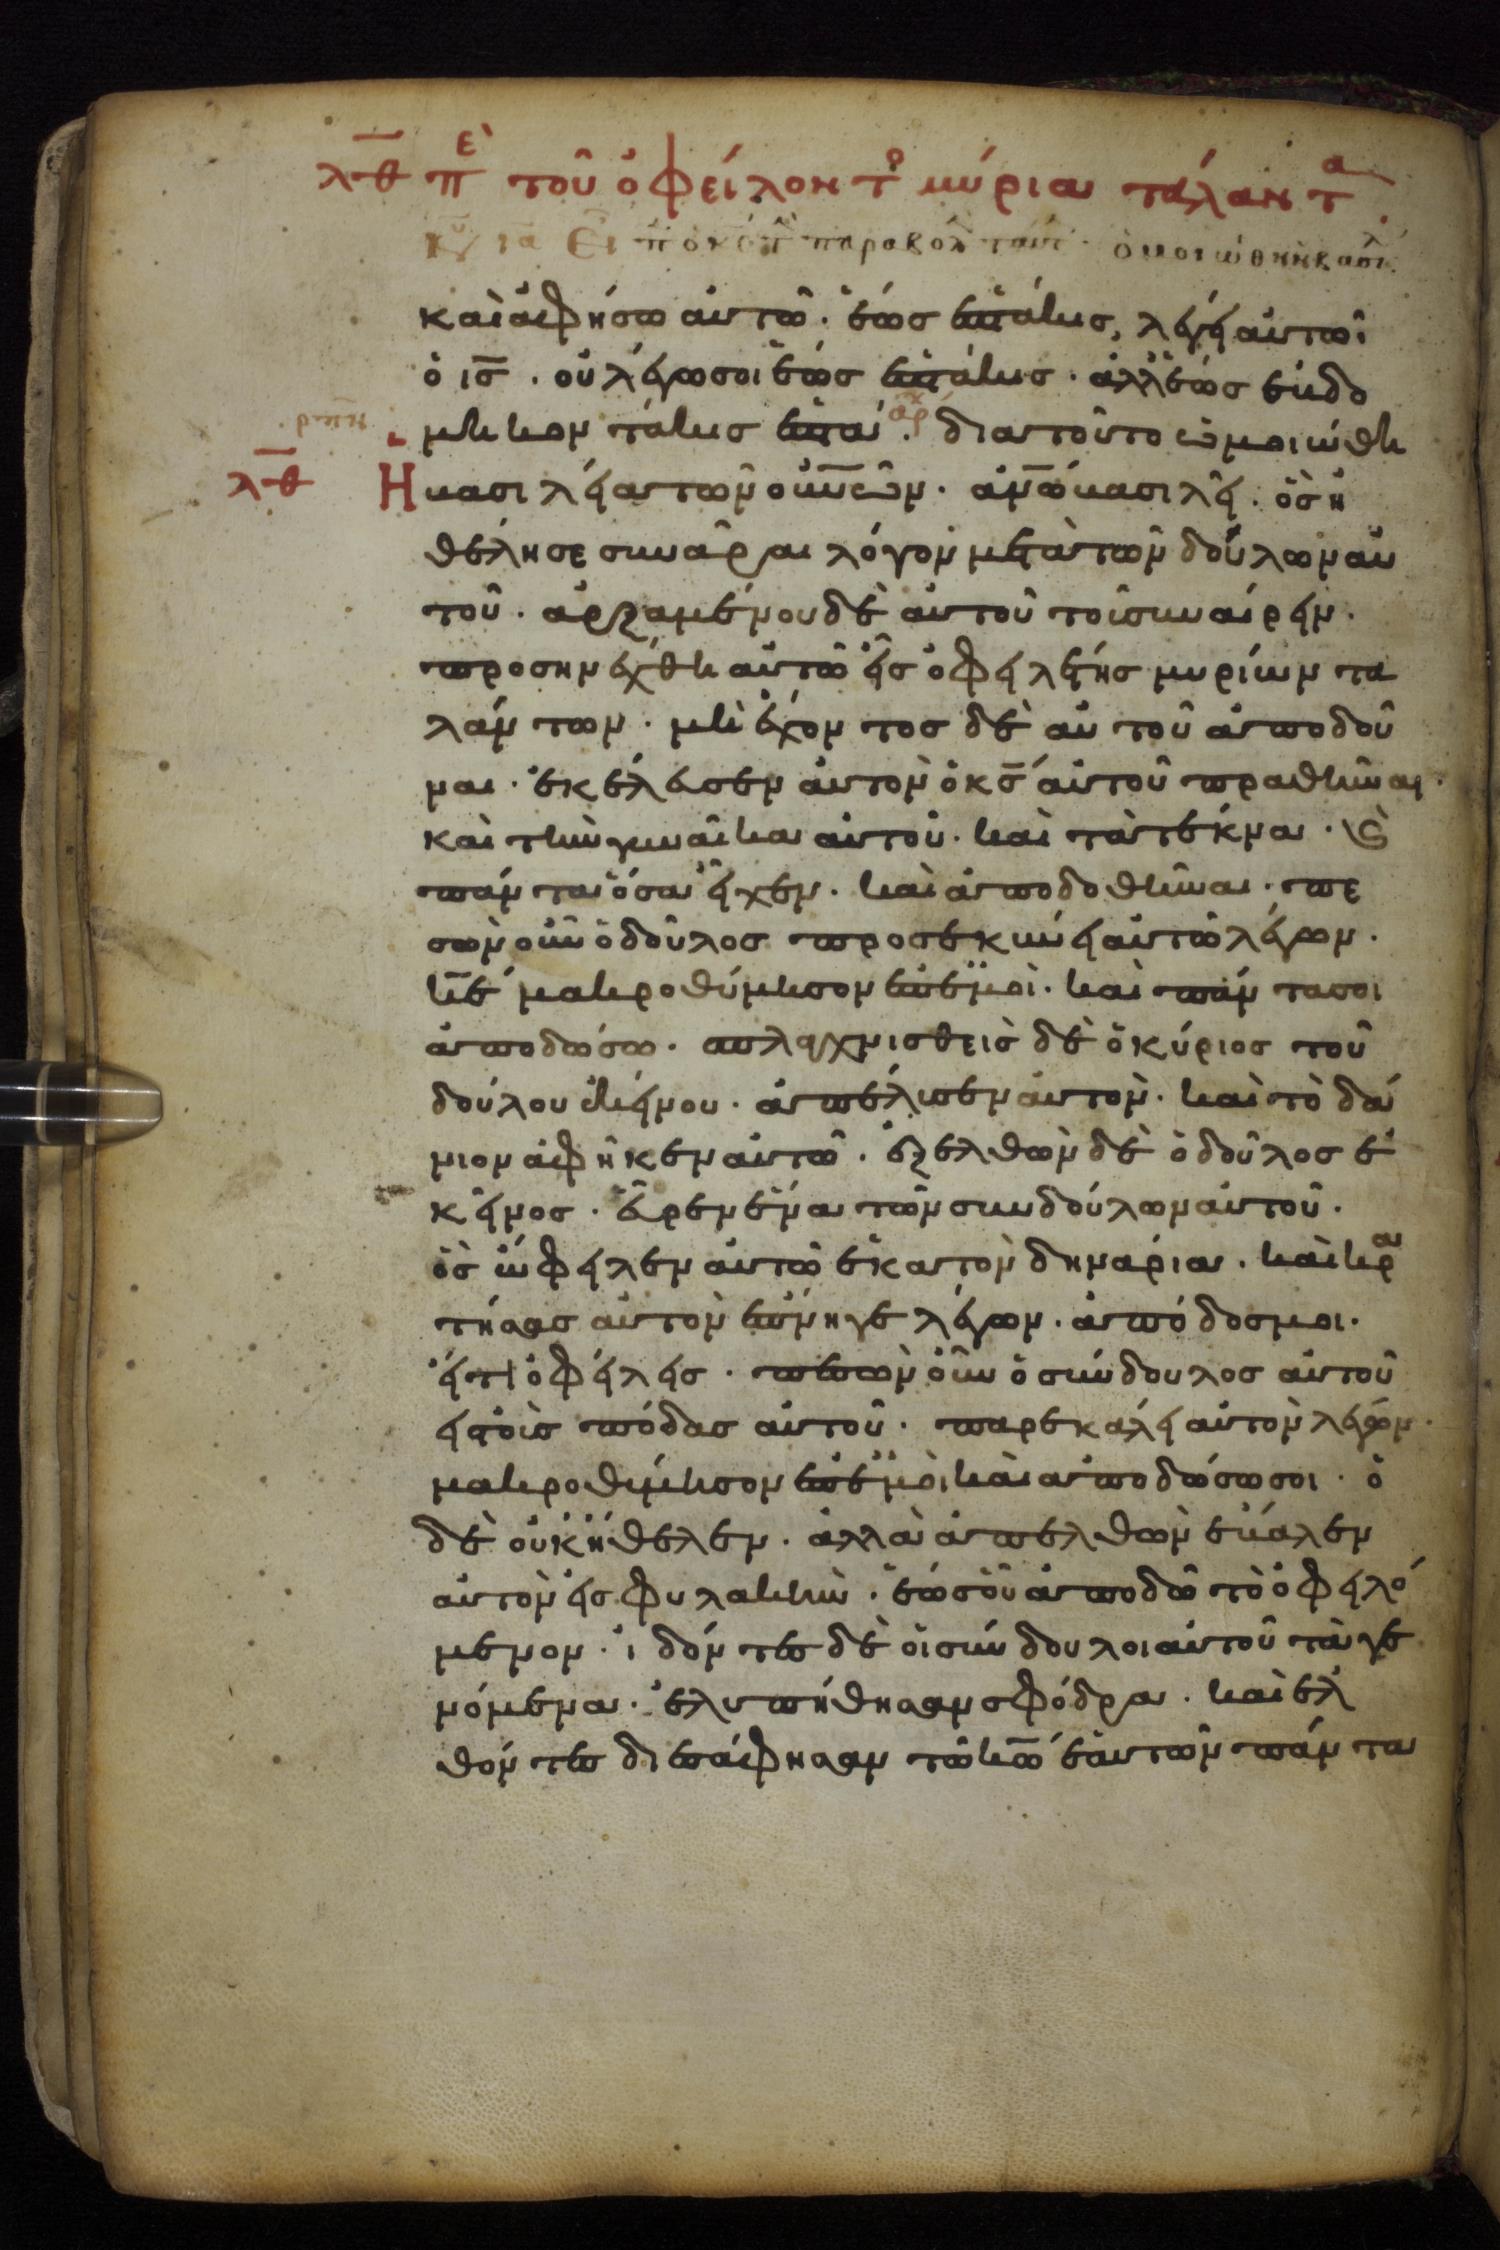 λθ πε τοῦ ὀφείλοντο μύρια τάλαντα
κυ ια εἶπ ὁ κς τ παραβολ ταύτ · ὁμοιώθη ἡ βασιλ
καὶ ἀφήσω αὐτῶ · ἕως ἑπτάκις, λέγει αὐτῶ
ὁ ις · οὐ λέγω σοι ἕως ἑπτάκις · ἀλλ ἕως ἑβδο
μηκοντάκις ἑπτά · αρχ διατοῦτο ὡμοιώθη
ρπη
λθ
Η βασιλεία τῶν οὐνῶν · ἀνω βασιλεῖ · ὃς ἠ
θέλησε συνᾶραι λόγον μετὰ τῶν δούλων αὐ
τοῦ · ἀρξαμένου δὲ αὐτοῦ τοῦ συναίρειν ·
προσηνέχθη αὐτῶ εἷς ὀφειλέτης μυρίων τα
λάντων · μὴ ἔχοντος δὲ αὐτοῦ ἀποδοῦ
ναι · ἐκέλευσεν αὐτὸν ὁ κς αὐτοῦ πραθῆναι ·
καὶ τὴν γυναῖκα αὐτοῦ · καὶ τὰ τέκνα · καὶ
πάντα ὅσα εἶχεν · καὶ ἀποδοθῆναι · πε
σὼν οὖν ὁ δοῦλος προσεκύνει αὐτῶ λέγων ·
κε μακροθύμησον ἐπ ἐμοὶ · καὶ πάντα σοι
ἀποδώσω · σπλαγχνισθεὶς δὲ ὁ κύριος τοῦ
δούλου ἐκείνου · ἀπέλυσεν αὐτὸν · καὶ τὸ δά
νιον ἀφῆκεν αὐτῶ · ἐξελθὼν δὲ ὁ δοῦλος ἐ
κεῖνος · εὗρεν ἕνα τῶν συνδούλων αὐτοῦ ·
ὃς ὤφειλεν αὐτῶ ἑκατὸν δηνάρια · καὶ κρα
τήσας αὐτὸν ἔπνηγε λέγων · ἀπόδος μοι ·
εἴ τι ὀφείλεις · πεσὼν οὖν ὁ σύνδουλος αὐτοῦ
εἰς τοὺς πόδας αὐτοῦ · παρεκάλει αὐτὸν λέγων ·
μακροθύμησον ἐπ ἐμοὶ καὶ ἀποδώσω σοι · ὁ
δὲ οὐκ ἤθελεν · ἀλλὰ ἀπελθὼν ἔβαλεν
αὐτὸν εἰς φυλακὴν · ἕως οὗ ἀποδῶ τὸ ὀφειλό
μενον · ἰδόντες δὲ οἱ σύνδουλοι αὐτοῦ τὰ γε
νόμενα · ἐλυπήθησαν σφόδρα · καὶ ἐλ
θόντες διεσάφησαν τῶ κω ἑαυτῶν πάντα